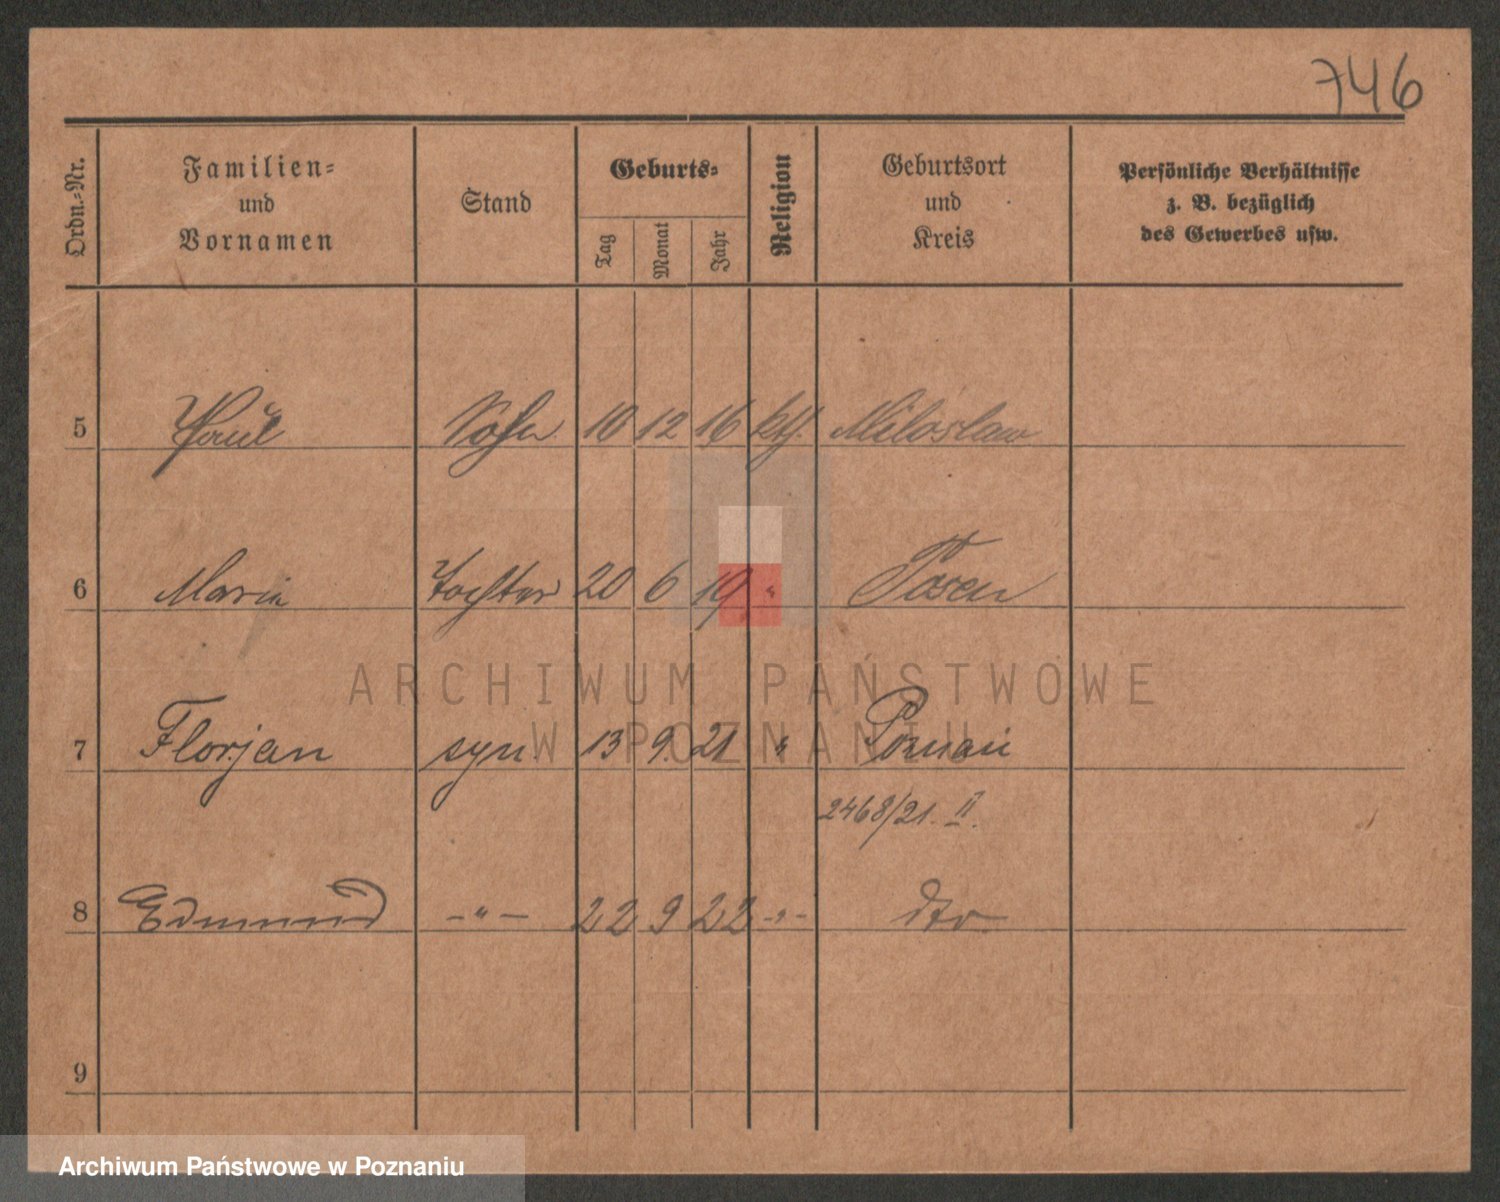 746
Ordn.-Nr.
Familien-
und
Vornamen
Stand
Geburts-
Tag
Monat
Jahr
Religion
Geburtsort
und
Kreis
Persönliche Verhältnisse
z. B. bezüglich
des Gewerbes usw.
5 Paul Sohn 10 12 16 kth. Miloslaw
6 Maria Tochter 20 6 19 " Posen
ARCHIWUM PAŃSTWOWE
W POZNANIU
7 Florjan syn. 13 9. 21 " Poznań
2468/21. II.
8 Edmund -"- 22 9 22 -"- dto
9
Archiwum Państwowe w Poznaniu